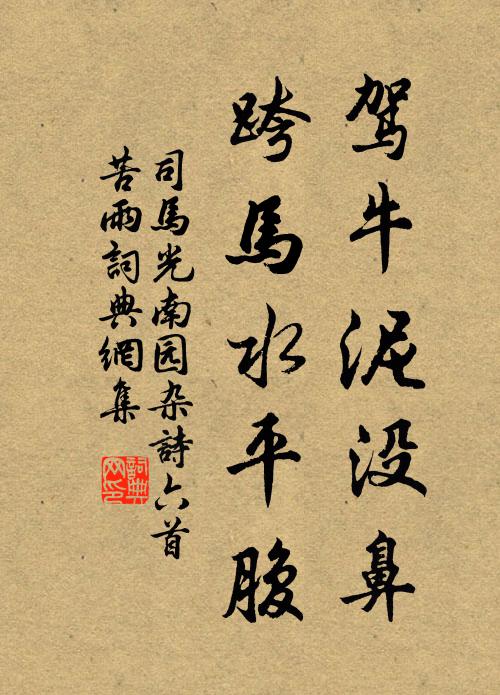 驾牛泥没鼻
跨馬水平腹
司馬光南园杂詩六首
苦雨詞典網集
詞典网印